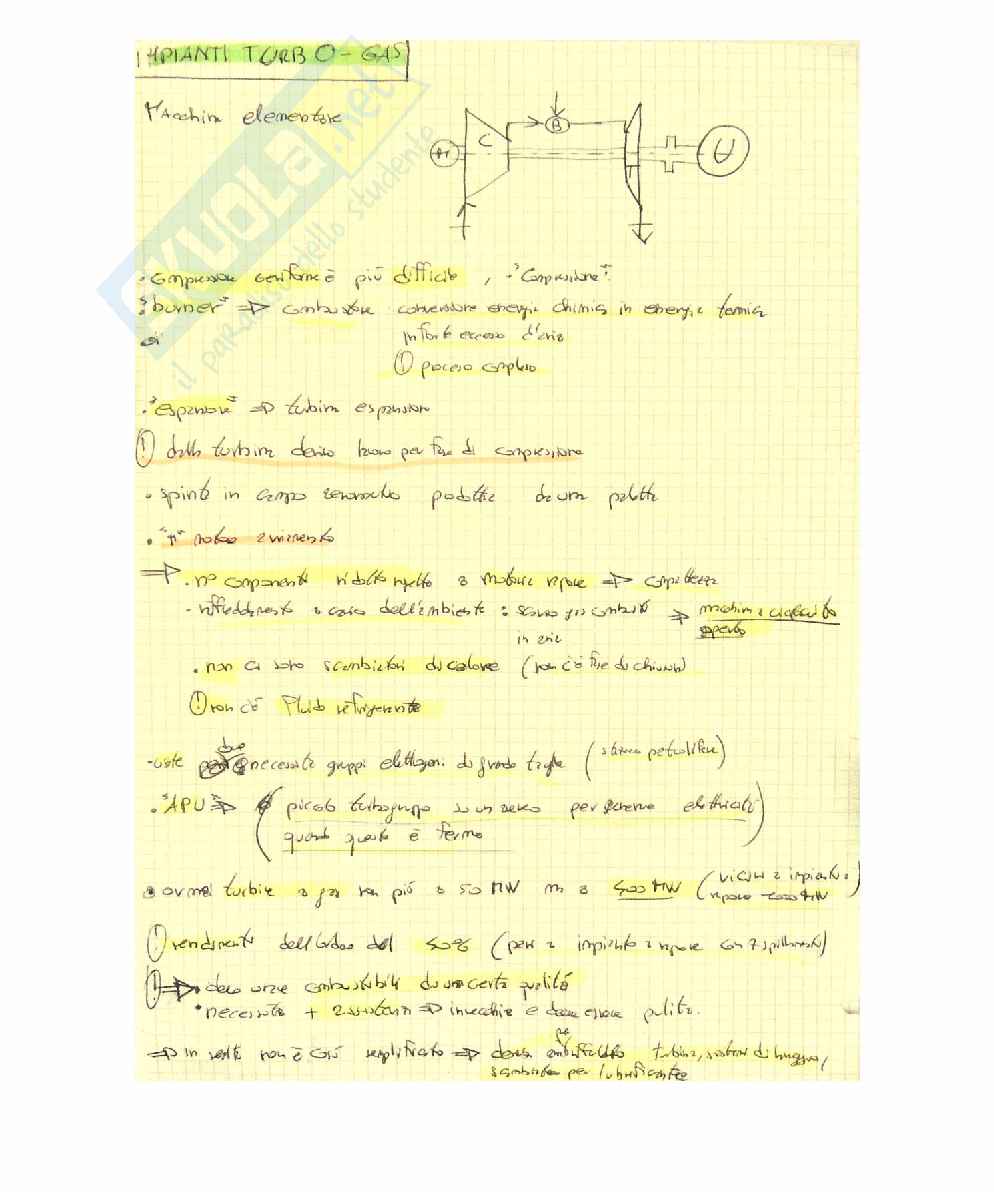 IMPIANTI TURBO-GAS
Macchina elementare
M C B T U
· compressore aeriforme è più difficile, → "Compressione".
· "burner" ⇒ combustore conversione energia chimica in energia termica
in forte eccesso d'aria
(!) processo complesso
· "espansore" ⇒ turbina espansione
(!) dalla turbina devo lavoro per fase di compressione
· spinta in campo aeronautico prodotta da una paletta
· "M" motore avviamento
⇒ · n° componenti ridotto rispetto a motore vapore ⇒ compattezza
- raffreddamento a carico dell'ambiente : scarico gas combusti ⇒ macchina a ciclo aperto
in aria
· non ci sono scambiatori di calore (non c'è fase di chiusura)
(!) non c'è fluido refrigerante
- usate dove necessita gruppi elettrogeni di grande taglia (stazioni petrolifere)
· "APU" ⇒ (piccolo turbogruppo su un aereo per generare elettricità
quando questo è fermo)
· ormai turbine a gas non più a 50 MW ma a 400 MW (vicini a impianto a
vapore MW)
(!) rendimento dell'ordine del 40% (pari a impianto a vapore con 7 spillamenti)
(!) ⇒ · devo usare combustibili di una certa qualità
· necessita + assistenza ⇒ invecchia e deve essere pulita.
⇒ in realtà non è così semplificato ⇒ turbina, sistemi di lavaggio,
scambiatore per lubrificante
SKUOLA.net
il paradiso dello studente